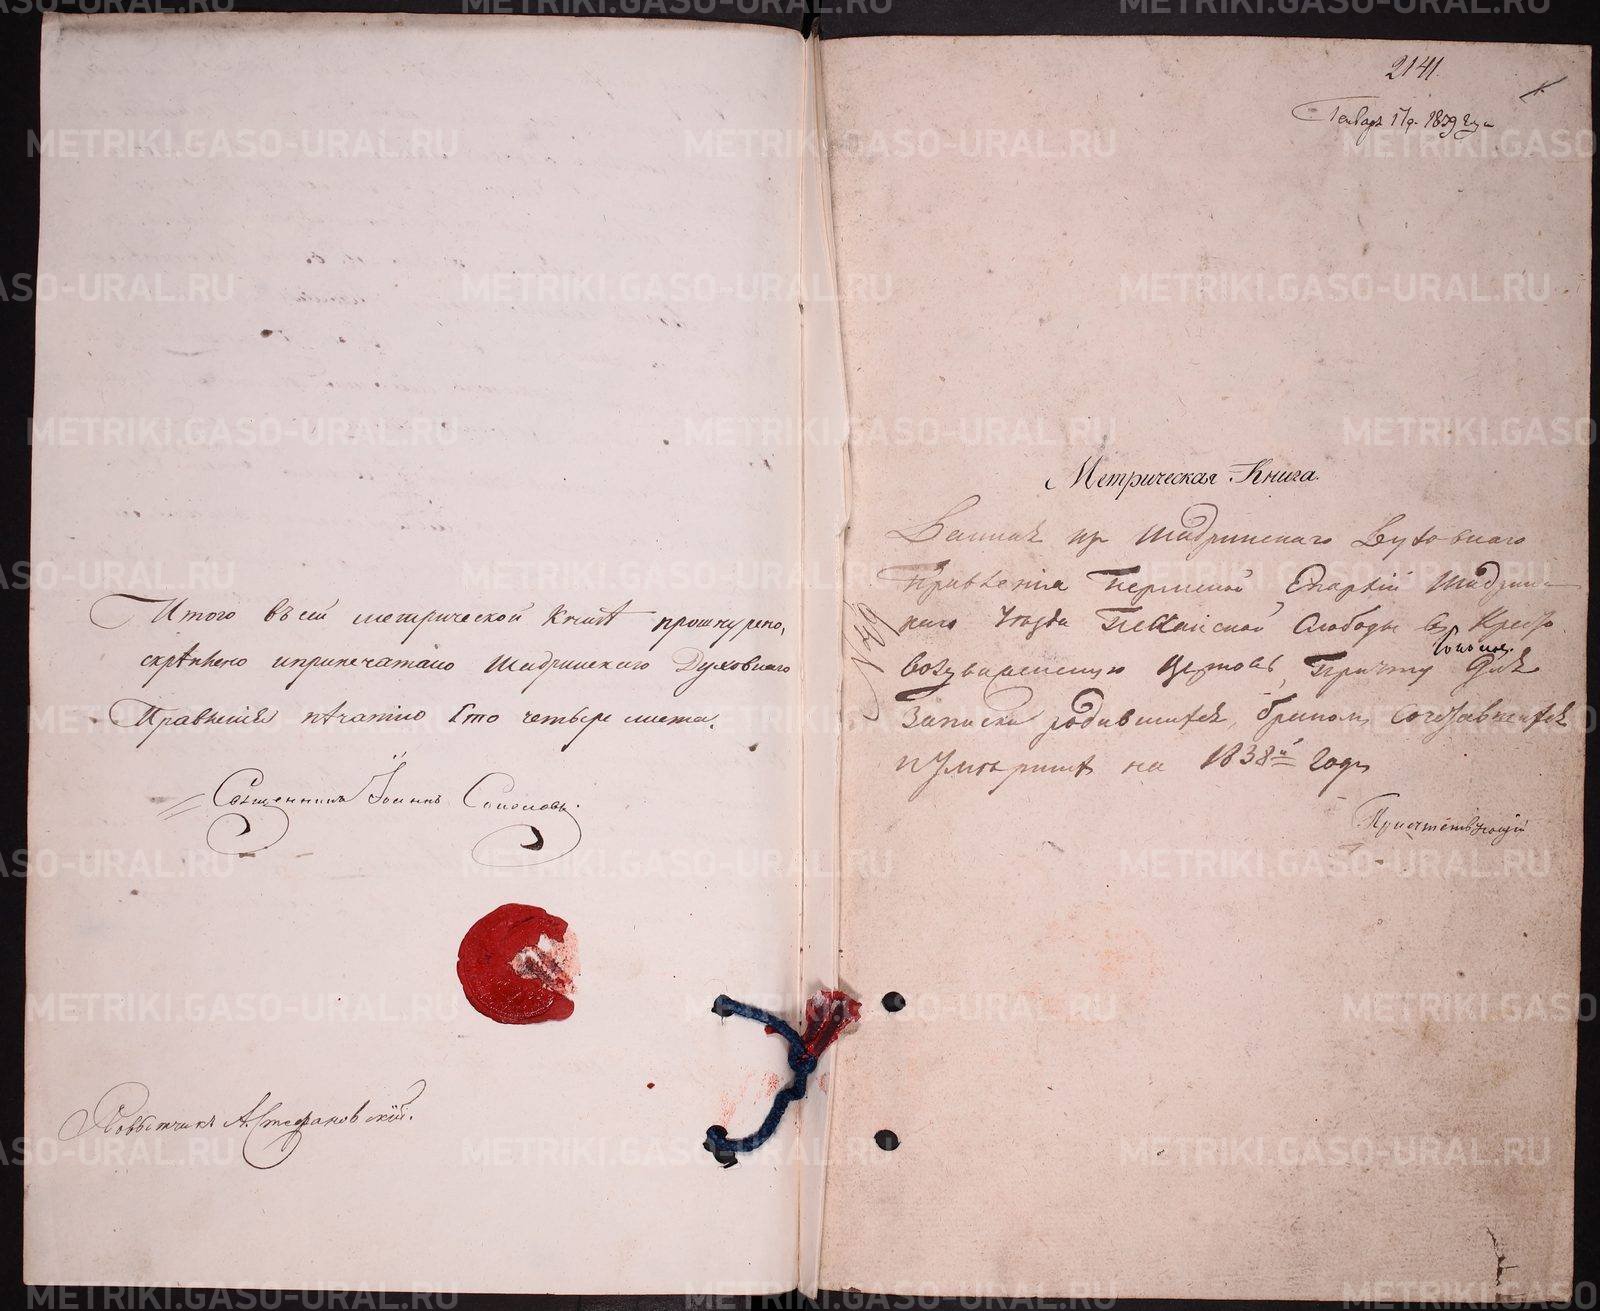 Итого въ сей метрической книгѣ прошнурено,
скрѣплено и припечатано Шадринскаго Духовнаго
Правленія печатію Сто четыре листа.
Священникъ Іоаннъ Соколовъ.
Повытчикъ А. Стефановскій.
2141
Генварь 17 д. 1839 года
Метрическая Книга.
Данная изъ Шадринскаго Духовнаго
Правленія Пермской Епархіи Шадрин-
скаго Уѣзда слободы въ Кресто
воздвиженскую церковь, Причту для
Записки родившихся, бракомъ сочетавшихся
и умершихъ на 1838й годъ
METRIKI.GASO-URAL.RU